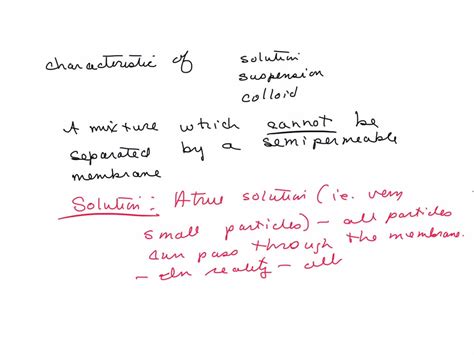 characteristic of solution
suspension
colloid
A mixture which cannot be
separated by a semipermeable
membrane
Solution: A true solution (ie. very
small particles) - all particles
can pass through the membrane.
- In reality - all